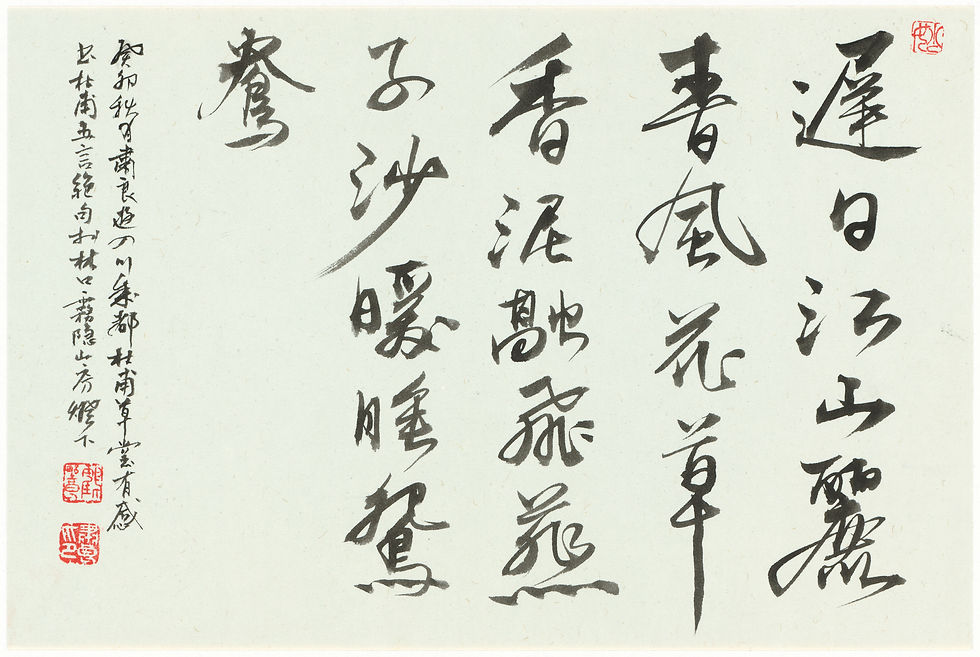 遲日江山麗
春風花草
香泥融飛燕
子沙暖睡鴛
鴦
癸卯秋月肅良遊四川成都杜甫草堂有感
書杜甫五言絕句於林口霧隱山房燈下